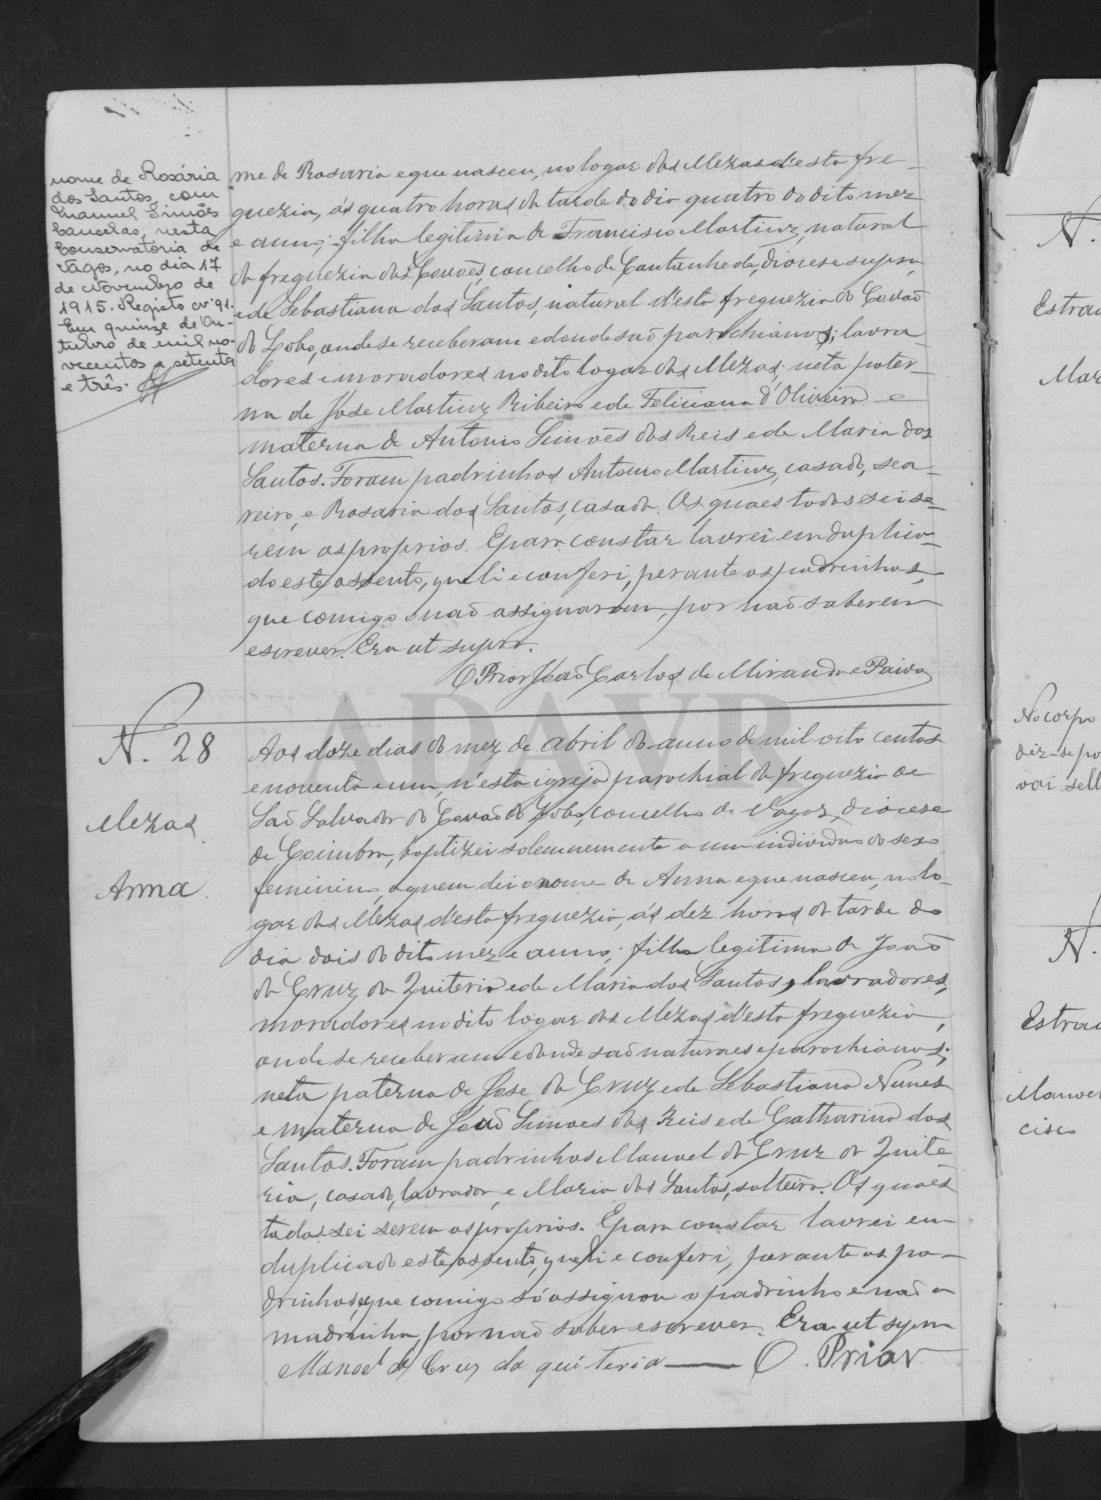 nome de Rosária
dos Santos, com
Manuel Simões
Carvelas, nesta
Conservatória de
Vagos, no dia 17
de Novembro de
1915. Registo nº 91.
Em quinze de Ou-
tubro de mil no-
vecentos e setenta
e três.
me de Rosaria e que nasceu, no logar das Mezas d'esta fre-
guezia, ás quatro horas da tarde do dia quatro do dito mez
e anno; filha legitima de Francisco Martins, natural
da freguezia dos Covões concelho de Cantanhede, diocese supra,
e de Sebastiana dos Santos, natural d'esta freguezia do Covaõ
do Lobo, onde se receberam e donde saõ parochianos; lavra
dores e moradores no dito logar das Mezas; neta pater-
na de Jose Martins Ribeiro e de Feliciana d'Oliveira e
materna de Antonio Simões dos Reis e de Maria dos
Santos. Foram padrinhos Antonio Martins, casado, sea-
reiro, e Rosaria dos Santos, casada. Os quaes todos sei se-
rem os proprios. E para constar lavrei em duplica-
do este assento, que li e conferi, perante os padrinhos,
que comigo naõ assignaram, por naõ saberem
escrever. Era ut supra.
O Prior Joaõ Carlos de Miranda e Paiva
N. 28
Mezas
Anna.
Aos doze dias do mez de Abril do anno de mil oito centos
e noventa e um, n'esta igreja parochial da freguezia de
Saõ Salvador do Covaõ do Lobo, concelho de Vagos, diocese
de Coimbra, baptizei solemnemente a um individuo do sexo
feminino, a quem dei o nome de Anna e que nasceu, no lo-
gar das Mezas d'esta freguezia, ás dez horas da tarde do
dia dois do dito mez e anno; filha legitima de Joaõ
da Cruz da Quiteria e de Maria dos Santos, lavradores,
moradores no dito logar das Mezas d'esta freguezia,
onde se receberam e donde saõ naturaes e parochianos;
neta paterna de Jose da Cruz e de Sebastiana Nunes
e materna de Joaõ Simoes dos Reis e de Catharina dos
Santos. Foram padrinhos Manoel da Cruz da Quite-
ria, casado, lavrador, e Maria dos Santos, solteira. Os quaes
todos sei serem os proprios. E para constar lavrei em
duplicado este assento, que li e conferi, perante os pa-
drinhos, que comigo só assignou o padrinho e naõ a
madrinha, por naõ saber escrever. Era ut supra
Manoel da Cruz da quiteria O. Prior
ADAVR
N.
Estrad
Mar
No corpo
diz-se po
vai sell
N.
Estrad
Manoel
cisco